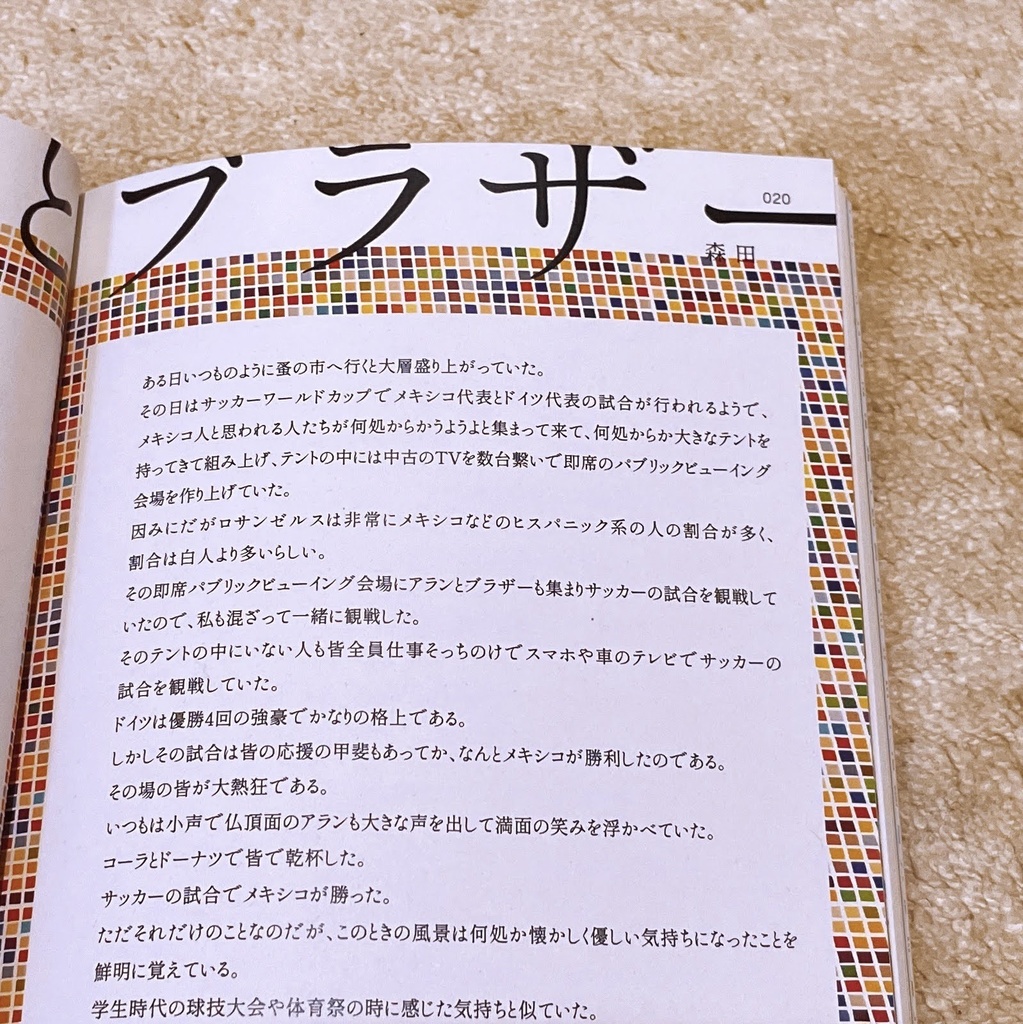 とブラザー
020
森田
ある日いつものように蚤の市へ行くと大層盛り上がっていた。
その日はサッカーワールドカップでメキシコ代表とドイツ代表の試合が行われるようで、
メキシコ人と思われる人たちが何処からかうようよと集まって来て、何処からか大きなテントを
持ってきて組み上げ、テントの中には中古のTVを数台繋いで即席のパブリックビューイング
会場を作り上げていた。
因みにだがロサンゼルスは非常にメキシコなどのヒスパニック系の人の割合が多く、
割合は白人より多いらしい。
その即席パブリックビューイング会場にアランとブラザーも集まりサッカーの試合を観戦して
いたので、私も混ざって一緒に観戦した。
そのテントの中にいない人も皆全員仕事そっちのけでスマホや車のテレビでサッカーの
試合を観戦していた。
ドイツは優勝4回の強豪でかなりの格上である。
しかしその試合は皆の応援の甲斐もあってか、なんとメキシコが勝利したのである。
その場の皆が大熱狂である。
いつもは小声で仏頂面のアランも大きな声を出して満面の笑みを浮かべていた。
コーラとドーナツで皆で乾杯した。
サッカーの試合でメキシコが勝った。
ただそれだけのことなのだが、このときの風景は何処か懐かしく優しい気持ちになったことを
鮮明に覚えている。
学生時代の球技大会や体育祭の時に感じた気持ちと似ていた。